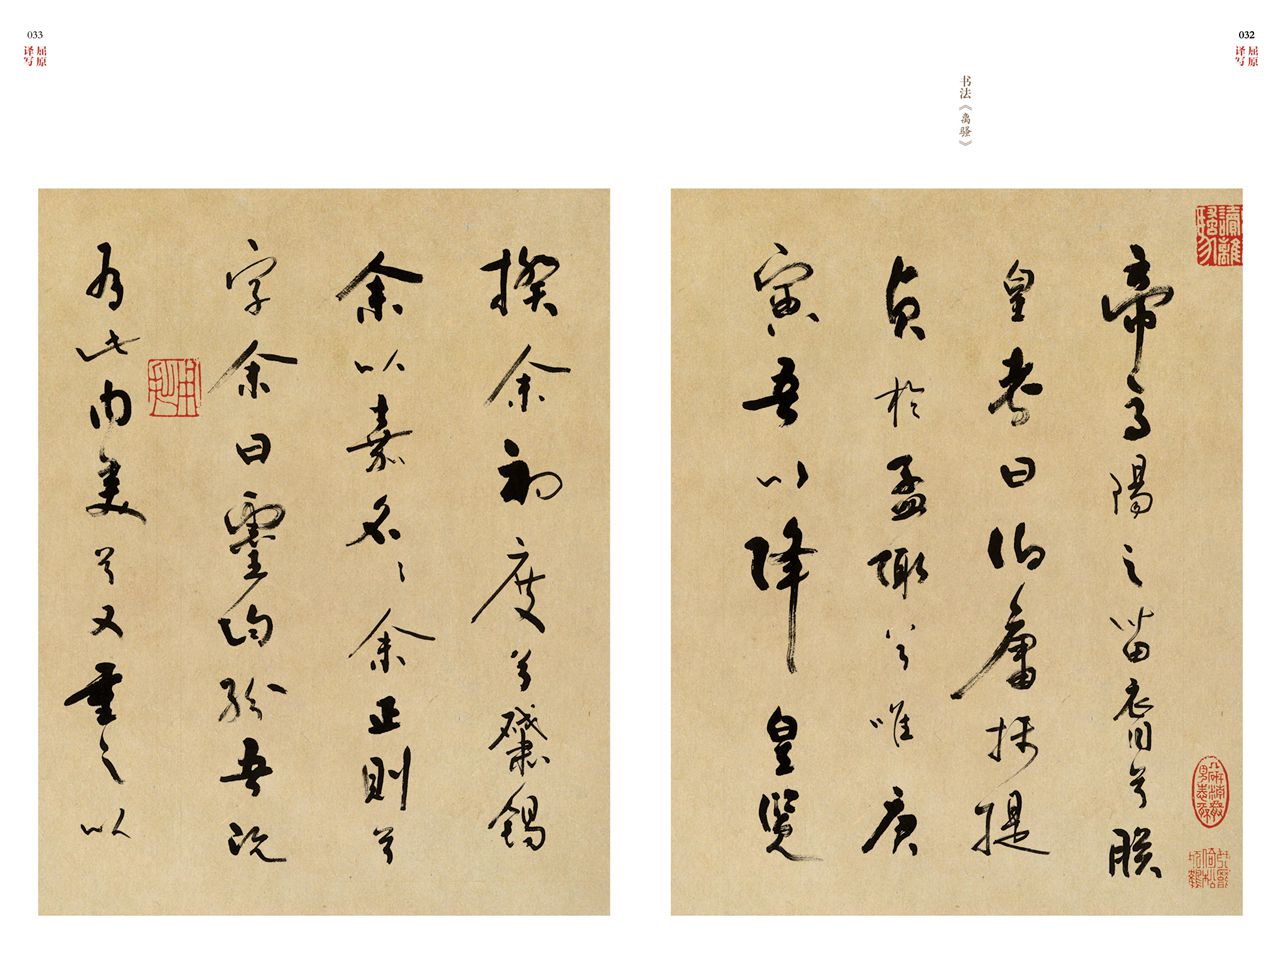 032
屈原
译写
书法《离骚》
帝高陽之苗裔兮朕
皇考曰伯庸攝提
貞於孟陬兮唯庚
寅吾以降皇覽
033
屈原
译写
揆余初度兮肇錫
余以嘉名〻余正則兮
字余曰靈均紛吾既
有此内美兮又重之以